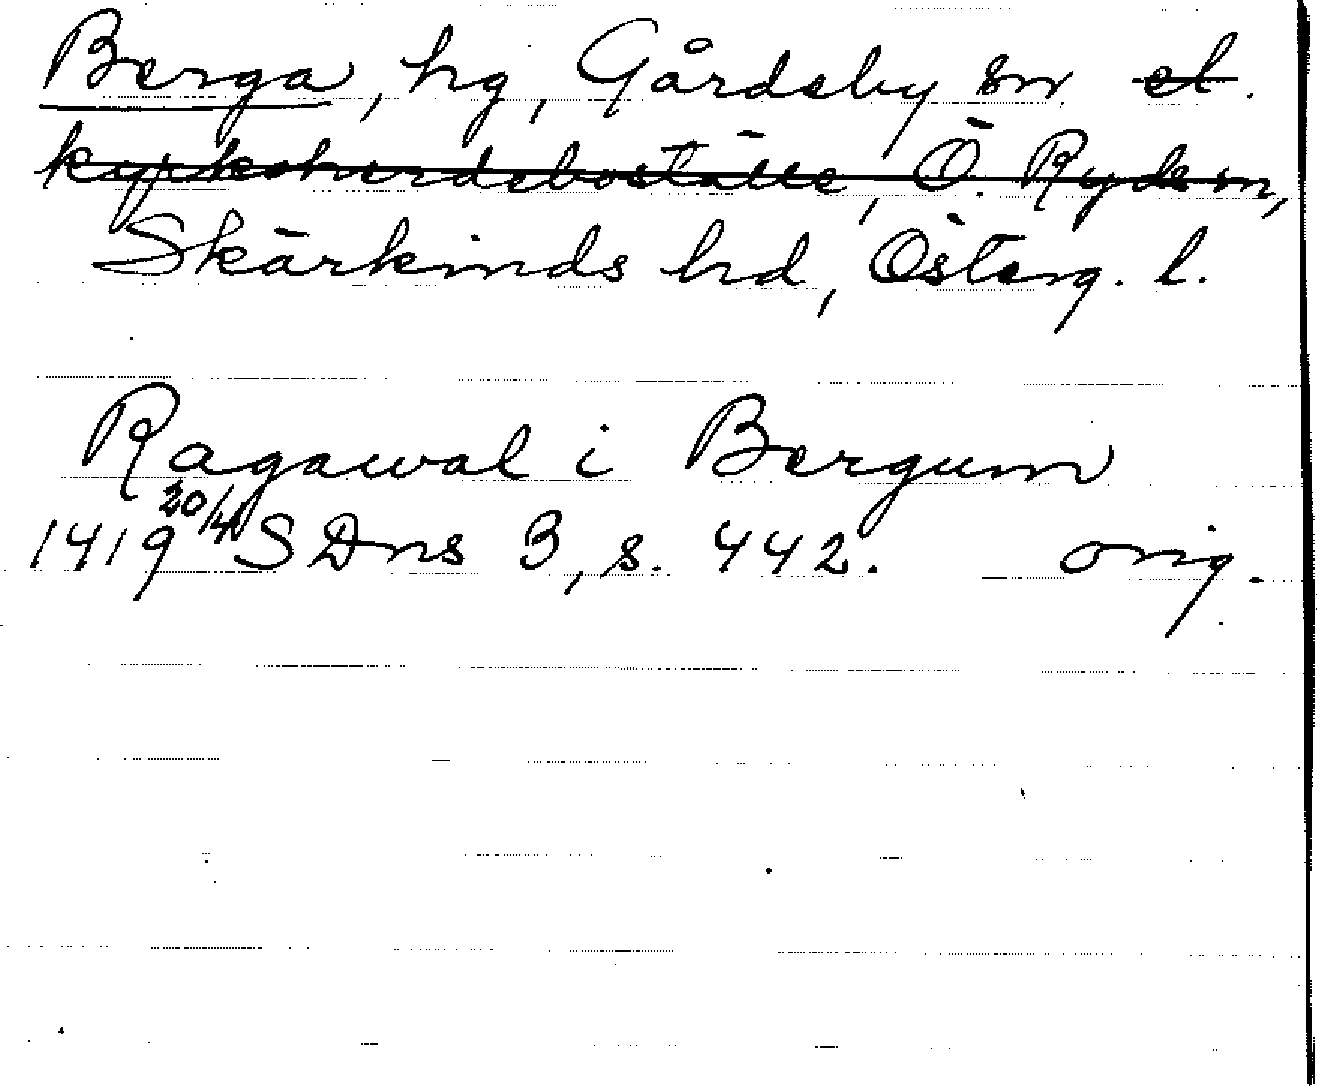 Berga, hg, Gårdeby sn el.
kyrkoherdeboställe, Ö. Ryds sn,
Skärkinds hd, Österg. l.
Ragawal i Bergum
1419 20/4 SDns 3, s. 442. orig.